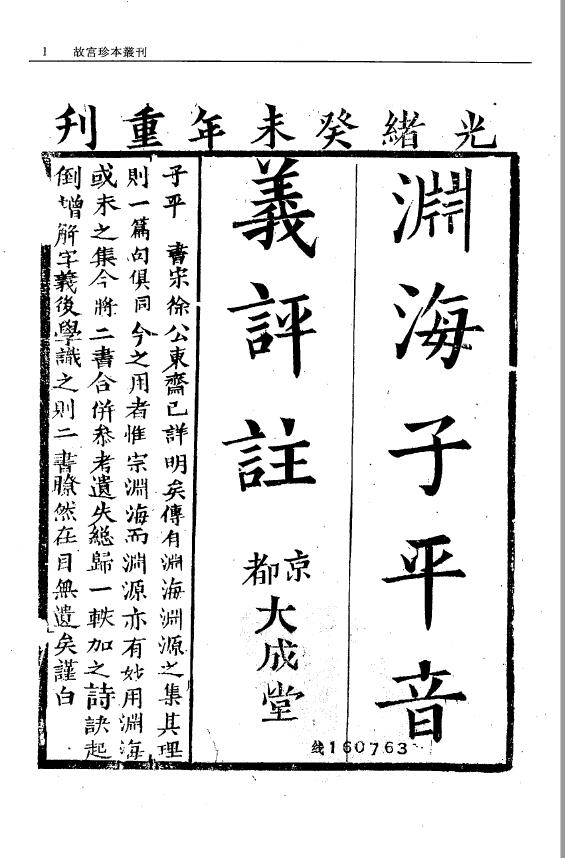 1 故宮珍本叢刊
光緒癸未年重刊
淵海子平音
义評註
京都
大成堂
线160763
子平 書宋徐公東齋已詳明矣傳有淵海淵源之集其理
則一篇句俱同今之用者惟宗淵海而淵源亦有妙用淵海
或未之集今將二書合併叅考遺失緫歸一軼加之詩訣起
倒增解字義後學識之則二書瞭然在目無遺矣謹白